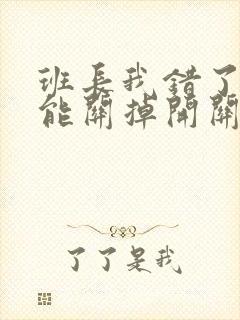 班長我錯了
能關掉開關
了了是我